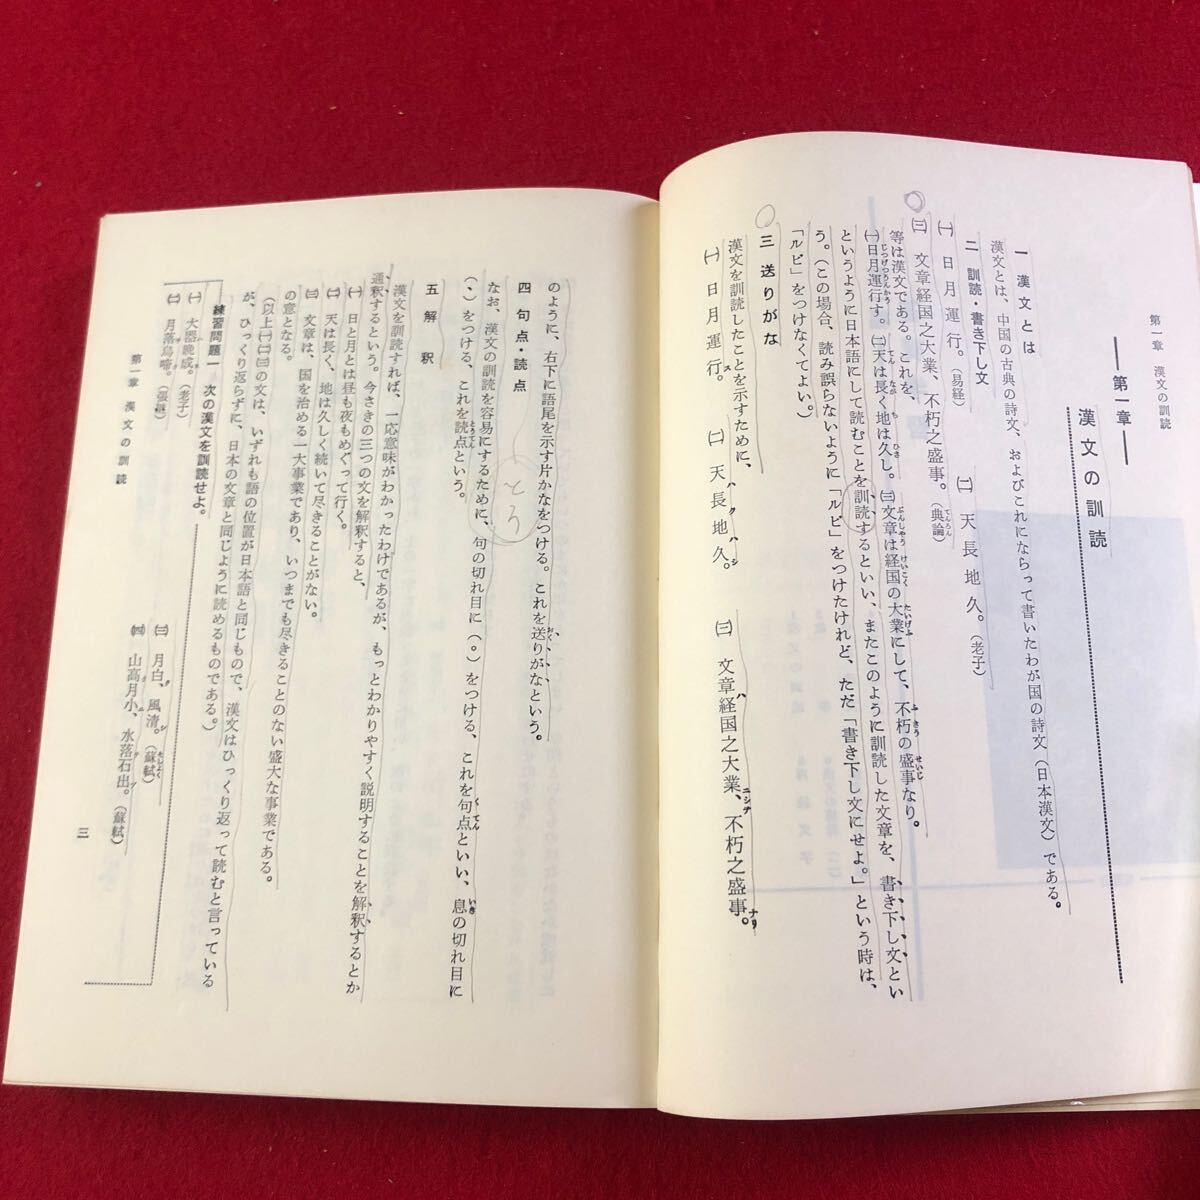 第一章 漢文の訓読
第一章
漢文の訓読
一 漢文とは
漢文とは、中国の古典の詩文、およびこれにならって書いたわが国の詩文(日本漢文)である。
二 訓読・書き下し文
㈠ 日月運行。(易経) ㈡ 天長地久。(老子)
㈢ 文章経国之大業、不朽之盛事。(典論)
等は漢文である。これを、
㈠日月運行す。㈡天は長く地は久し。㈢文章は経国の大業にして、不朽の盛事なり。
というように日本語にして読むことを訓読するといい、またこのように訓読した文章を、書き下し文とい
う。(この場合、読み誤らないように「ルビ」をつけたけれど、ただ「書き下し文にせよ。」という時は、
「ルビ」をつけなくてよい。)
三 送りがな
漢文を訓読したことを示すために、
㈠ 日月運行ス。 ㈡ 天ハ長ク地ハ久シ。 ㈢ 文章ハ経国之大業ニシテ、不朽之盛事ナリ。
のように、右下に語尾を示す片かなをつける。これを送りがなという。
四 句点・読点
とう
なお、漢文の訓読を容易にするために、句の切れ目に(。)をつける、これを句点といい、息の切れ目に
(、)をつける、これを読点という。
五 解釈
漢文を訓読すれば、一応意味がわかったわけであるが、もっとわかりやすく説明することを解釈するとか
通釈するという。今さきの三つの文を解釈すると、
㈠ 日と月とは昼も夜もめぐって行く。
㈡ 天は長く、地は久しく続いて尽きることがない。
㈢ 文章は、国を治める一大事業であり、いつまでも尽きることのない盛大な事業である。
の意となる。
(以上㈠㈡㈢の文は、いずれも語の位置が日本語と同じもので、漢文はひっくり返って読むと言っている
が、ひっくり返らずに、日本の文章と同じように読めるものである。)
練習問題一 次の漢文を訓読せよ。
㈠ 大器晩成。(老子) ㈢ 月白、風清。(蘇軾)
㈡ 月落烏啼。(張継) ㈣ 山高月小、水落石出。(蘇軾)
第一章 漢文の訓読
三